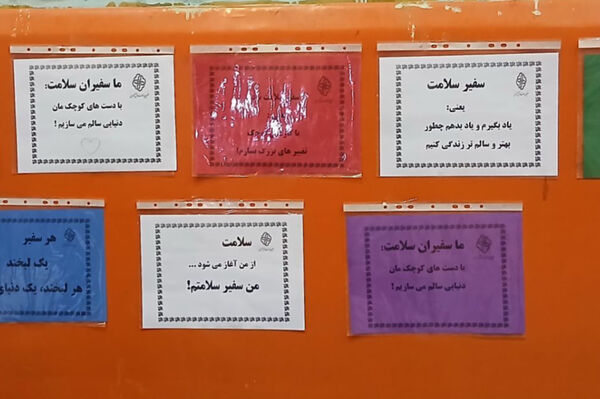 ما سفیران سلامت:
با دست های کوچک مان
دنیایی سالم می سازیم!
تغییر های بزرگ بسازم!
سفیر سلامت
یعنی:
یاد بگیرم و یاد بدهم چطور
بهتر و سالم تر زندگی کنیم
هر سفیر
یک لبخند
هر لبخند، یک دنیای
سلامت
از من آغاز می شود ...
من سفیر سلامتم!
ما سفیران سلامت:
با دست های کوچک مان
دنیایی سالم می سازیم!